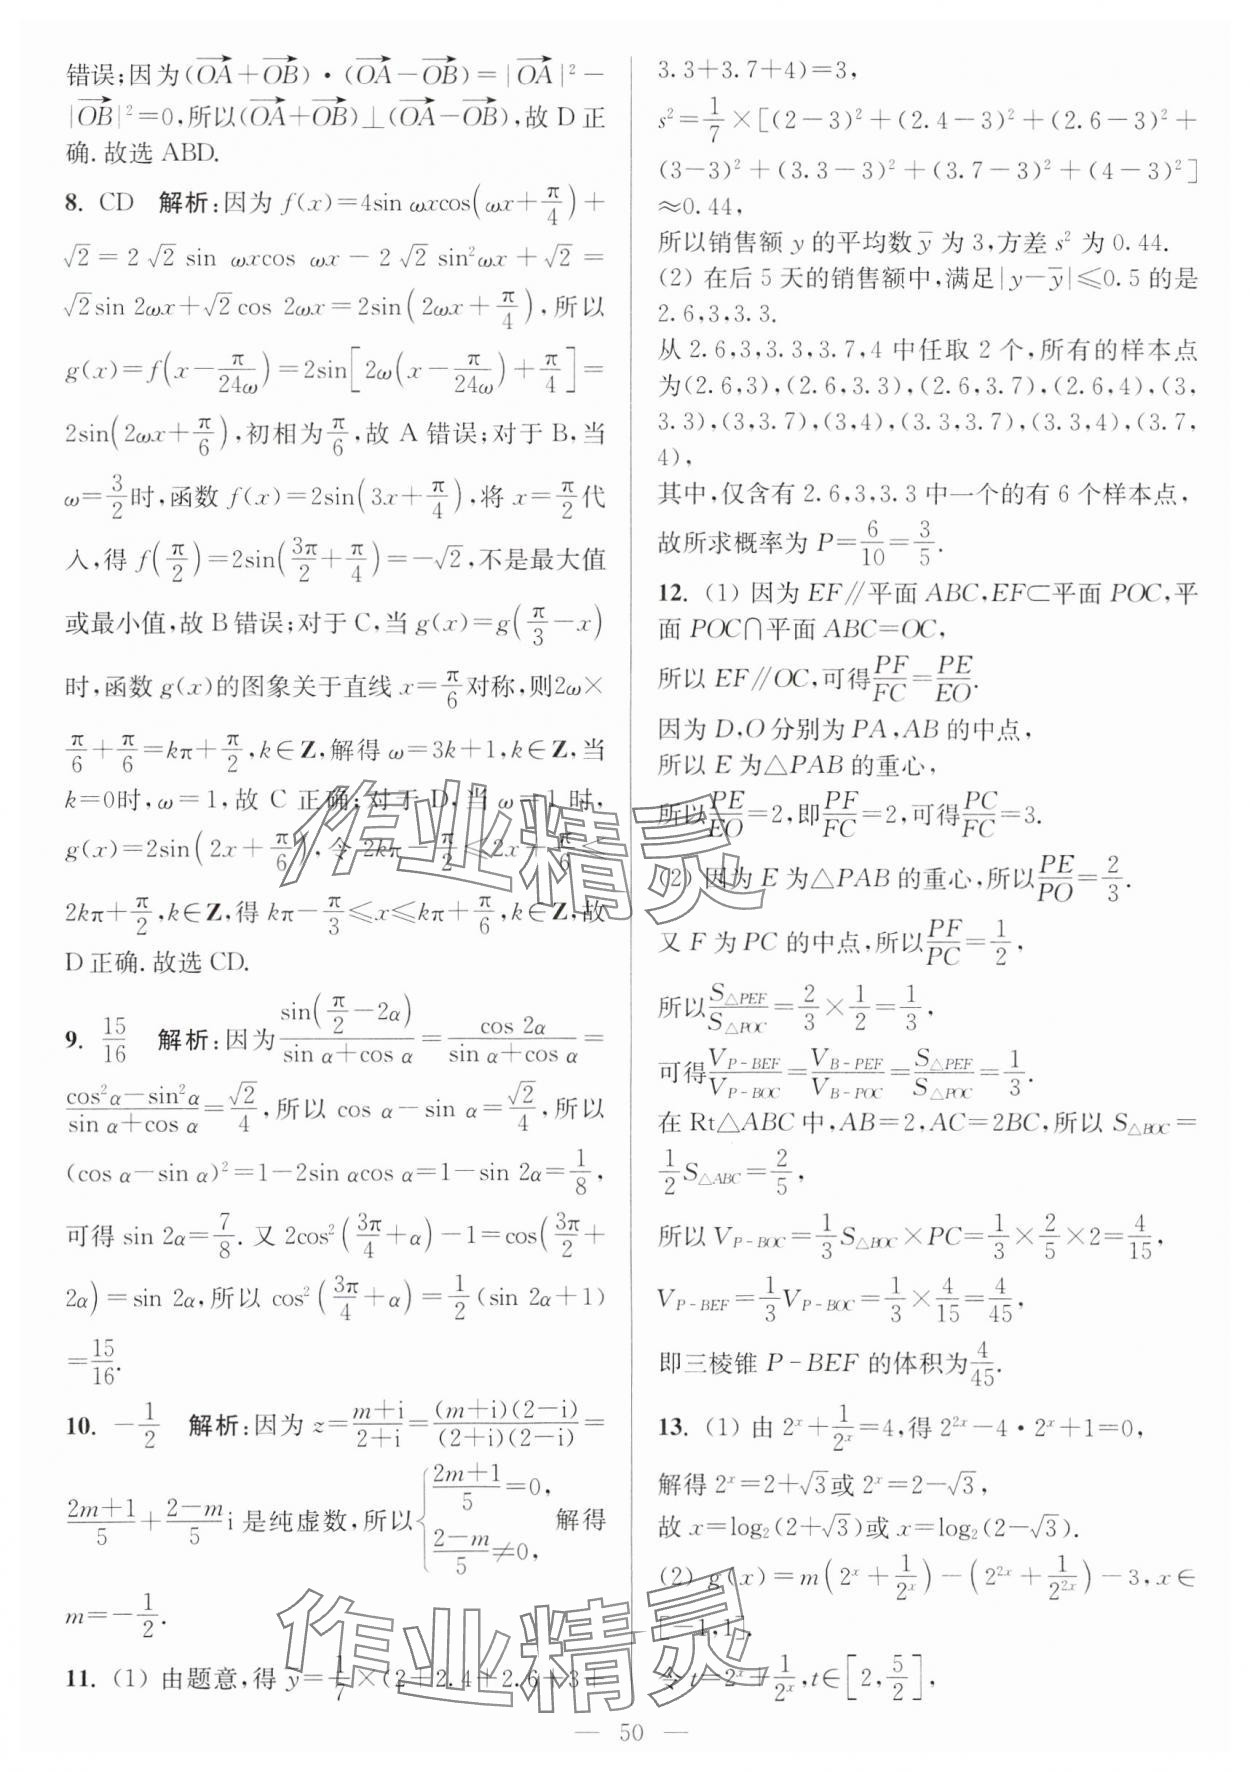 错误;因为(OA+OB)·(OA-OB)=|OA|²-
|OB|²=0,所以(OA+OB)⊥(OA-OB),故 D 正
确.故选 ABD.
8. CD 解析:因为 f(x)=4sin ωxcos(ωx+π/4)+
√2=2√2 sin ωxcos ωx-2√2 sin²ωx+√2=
√2sin 2ωx+√2cos 2ωx=2sin(2ωx+π/4),所以
g(x)=f(x-π/24ω)=2sin[2ω(x-π/24ω)+π/4]=
2sin(2ωx+π/6),初相为π/6,故 A 错误;对于 B,当
ω=3/2时,函数 f(x)=2sin(3x+π/4),将 x=π/2代
入,得 f(π/2)=2sin(3π/2+π/4)=-√2,不是最大值
或最小值,故 B 错误;对于 C,当 g(x)=g(π/3-x)
时,函数 g(x)的图象关于直线 x=π/6对称,则2ω×
π/6+π/6=kπ+π/2,k∈Z,解得 ω=3k+1,k∈Z,当
k=0时,ω=1,故 C 正确;对于 D,当 ω=1 时,
g(x)=2sin(2x+π/6),令 2kπ-π/2≤2x+π/6≤
2kπ+π/2,k∈Z,得 kπ-π/3≤x≤kπ+π/6,k∈Z,故
D 正确.故选 CD.
9. 15/16 解析:因为sin(π/2-2α)/(sin α+cos α)=cos 2α/(sin α+cos α)=
(cos²α-sin²α)/(sin α+cos α)=√2/4,所以 cos α-sin α=√2/4,所以
(cos α-sin α)²=1-2sin αcos α=1-sin 2α=1/8,
可得 sin 2α=7/8. 又 2cos²(3π/4+α)-1=cos(3π/2+
2α)=sin 2α,所以 cos²(3π/4+α)=1/2(sin 2α+1)
=15/16.
10. -1/2 解析:因为 z=(m+i)/(2+i)=(m+i)(2-i)/(2+i)(2-i)=
(2m+1)/5+(2-m)/5 i 是纯虚数,所以{(2m+1)/5=0, (2-m)/5≠0, 解得
m=-1/2.
11. (1) 由题意,得 y=1/7×(2+2.4+2.6+3+
3.3+3.7+4)=3,
s²=1/7×[(2-3)²+(2.4-3)²+(2.6-3)²+
(3-3)²+(3.3-3)²+(3.7-3)²+(4-3)²]
≈0.44,
所以销售额 y 的平均数 y̅ 为 3,方差 s² 为 0.44.
(2) 在后 5 天的销售额中,满足|y-y̅|≤0.5 的是
2.6,3,3.3.
从 2.6,3,3.3,3.7,4 中任取 2 个,所有的样本点
为(2.6,3),(2.6,3.3),(2.6,3.7),(2.6,4),(3,
3.3),(3,3.7),(3,4),(3.3,3.7),(3.3,4),(3.7,
4),
其中,仅含有 2.6,3,3.3 中一个的有 6 个样本点,
故所求概率为 P=6/10=3/5.
12. (1) 因为 EF∥平面 ABC,EF⊂平面 POC,平
面 POC∩平面 ABC=OC,
所以 EF∥OC,可得PF/FC=PE/EO.
因为 D,O 分别为 PA,AB 的中点,
所以 E 为△PAB 的重心,
所以PE/EO=2,即PF/FC=2,可得PC/FC=3.
(2) 因为 E 为△PAB 的重心,所以PE/PO=2/3.
又 F 为 PC 的中点,所以PF/PC=1/2,
所以S△PEF/S△POC=2/3×1/2=1/3,
可得V_P-BEF/V_P-BOC=V_B-PEF/V_B-POC=S△PEF/S△POC=1/3.
在 Rt△ABC 中,AB=2,AC=2BC,所以 S△BOC=
1/2S△ABC=2/5,
所以 V_P-BOC=1/3S△BOC×PC=1/3×2/5×2=4/15,
V_P-BEF=1/3V_P-BOC=1/3×4/15=4/45,
即三棱锥 P-BEF 的体积为4/45.
13. (1) 由 2ˣ+1/2ˣ=4,得 2²ˣ-4·2ˣ+1=0,
解得 2ˣ=2+√3或 2ˣ=2-√3,
故 x=log₂(2+√3)或 x=log₂(2-√3).
(2) g(x)=m(2ˣ+1/2ˣ)-(2²ˣ+1/2²ˣ)-3,x∈
[-1,1].
令 t=2ˣ+1/2ˣ,t∈[2,5/2],
— 50 —
作业精灵
作业精灵